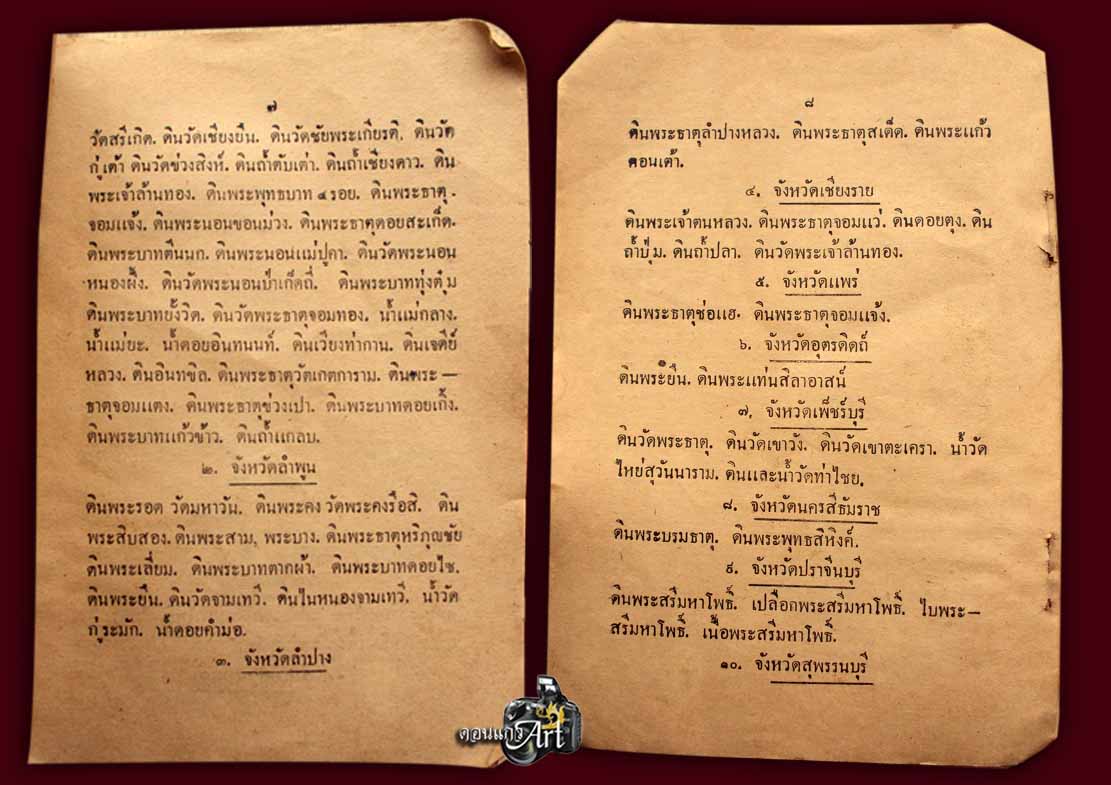 ๗
วัดสรีเกิด. ดินวัดเชียงยืน. ดินวัดชัยพระเกียรติ. ดินวัด
กู่เต้า ดินวัดข่วงสิงห์. ดินถ้ำตับเต่า. ดินถ้ำเชียงดาว. ดิน
พระเจ้าล้านทอง. ดินพระพุทธบาท ๔ รอย. ดินพระธาตุ.
จอมแจ้ง. ดินพระนอนขอนม่วง. ดินพระธาตุดอยสะเก็ด.
ดินพระบาทตีนนก. ดินพระนอนแม่ปูคา. ดินวัดพระนอน
หนองผึ้ง. ดินวัดพระนอนป่าเก็ดถี่. ดินพระบาททุ่งตุ๋ม
ดินพระบาทยั้งวิด. ดินวัดพระธาตุจอมทอง. น้ำแม่กลาง.
น้ำแม่ยะ. น้ำดอยอินทนนท์. ดินเวียงท่ากาน. ดินเจดีย์
หลวง. ดินอินทขิล. ดินพระธาตุวัตเกตการาม. ดินพระ —
ธาตุจอมแตง. ดินพระธาตุข่วงเปา. ดินพระบาทดอยเกิ้ง.
ดินพระบาทแก้วข้าว. ดินถ้ำแกลบ.
๒. จังหวัดลำพูน
ดินพระรอด วัดมหาวัน. ดินพระคง วัดพระคงรือสี. ดิน
พระสิบสอง. ดินพระสาม, พระบาง. ดินพระธาตุหริภุญชัย
ดินพระเลี่ยม. ดินพระบาทตากผ้า. ดินพระบาทดอยไซ.
ดินพระยืน. ดินวัดจามเทวี. ดินในหนองจามเทวี. น้ำวัด
กู่ระมัก. น้ำดอยคำม่อ.
๓. จังหวัดลำปาง
๘
ดินพระธาตุลำปางหลวง. ดินพระธาตุสเด็ด. ดินพระแก้ว
ดอนเต้า.
๔. จังหวัดเชียงราย
ดินพระเจ้าตนหลวง. ดินพระธาตุจอมแว่. ดินดอยตุง. ดิน
ถ้ำปุ่ม. ดินถ้ำปลา. ดินวัดพระเจ้าล้านทอง.
๕. จังหวัดแพร่
ดินพระธาตุช่อแฮ. ดินพระธาตุจอมแจ้ง.
๖. จังหวัดอุตรดิตถ์
ดินพระยืน. ดินพระแท่นสิลาอาสน์
๗. จังหวัดเพ็ชร์บุรี
ดินวัดพระธาตุ. ดินวัดเขาวัง. ดินวัดเขาตะเครา. น้ำวัด
ไหย่สุวันนาราม. ดินและน้ำวัดท่าไชย.
๘. จังหวัดนครสีธัมราช
ดินพระบรมธาตุ. ดินพระพุทธสีหิงค์.
๙. จังหวัดปราจีนบุรี
ดินพระสรีมหาโพธิ์. เปลือกพระสรีมหาโพธิ์. ไบพระ—
สรีมหาโพธิ์. เนื้อพระสรีมหาโพธิ์.
๑๐. จังหวัดสุพรรนบุรี
ดอนแก้ว
Art